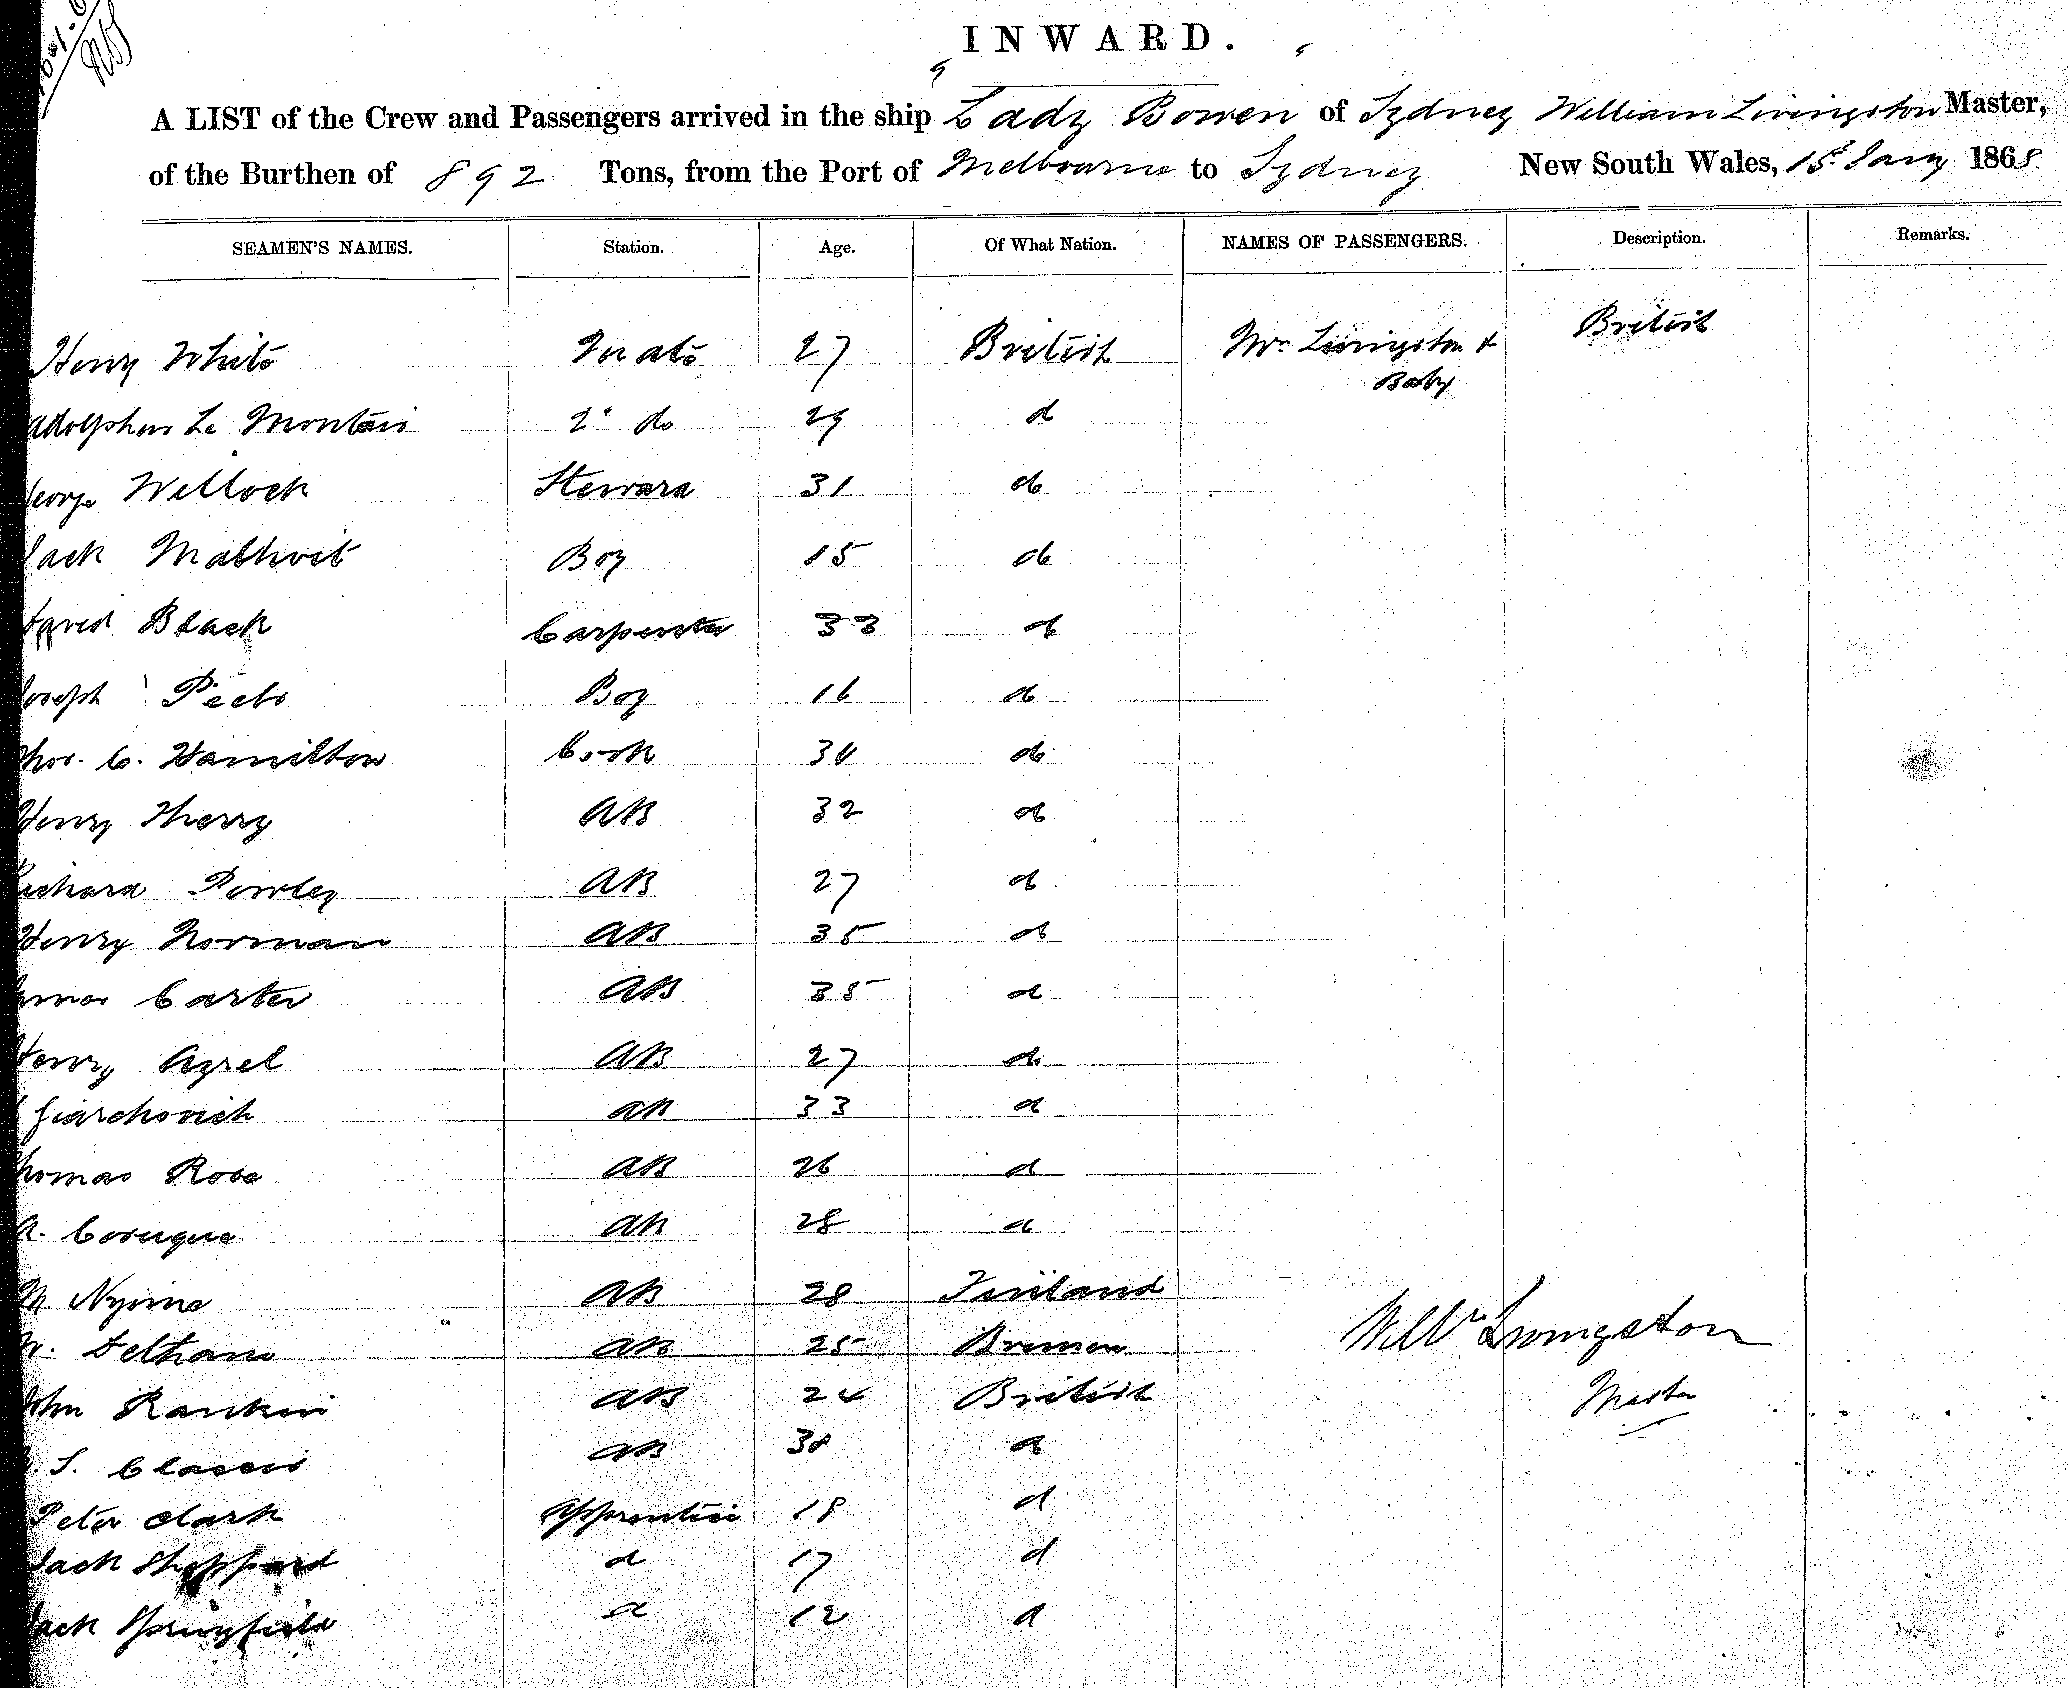 INWARD.
A LIST of the Crew and Passengers arrived in the ship Lady Bowen of Sydney William Livingston Master,
of the Burthen of 892 Tons, from the Port of Melbourne to Sydney New South Wales, 15 Jany 1868
SEAMEN'S NAMES. Station. Age. Of What Nation. NAMES OF PASSENGERS. Description. Remarks.
Henry White Mate 27 British Mrs Livingston & British
Baby
Adolphus Le Montais 2d do 29 d
George Wellock Steward 31 do
Jack Boy 15 do
Black Carpenter 33 do
Joseph Boy 16 do
Thos. C. Hamilton Cook 34 do
Henry AB 32 do
Richard Powley AB 27 d
Henry Norman AB 35 d
James Carter AB 35 d
Henry AB 27 do
AB 33 d
Thomas Rose AB 26 d
A. AB 28 d
M. AB 28 Finland
AB 25 Bremen
John Rankin AB 24 British
S. AB d
Peter Clark Apprentice 18 d
Jack Sheppard d 17 d
Jack Springfield d 12 d
Willm Livingston
Master